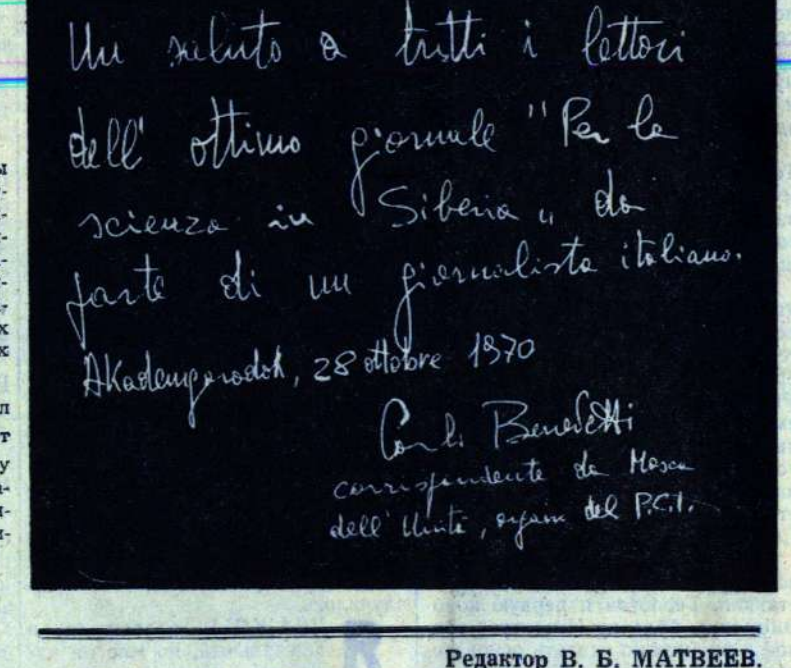 Un saluto a tutti i lettori
dell' ottimo giornale "Per la
scienza in Siberia" da
parte di un giornalista italiano.
Akademgorodok, 28 ottobre 1970
Carlo Benedetti
corrispondente da Mosca
dell' Unità, organo del P.C.I.
Редактор В. Б. МАТВЕЕВ